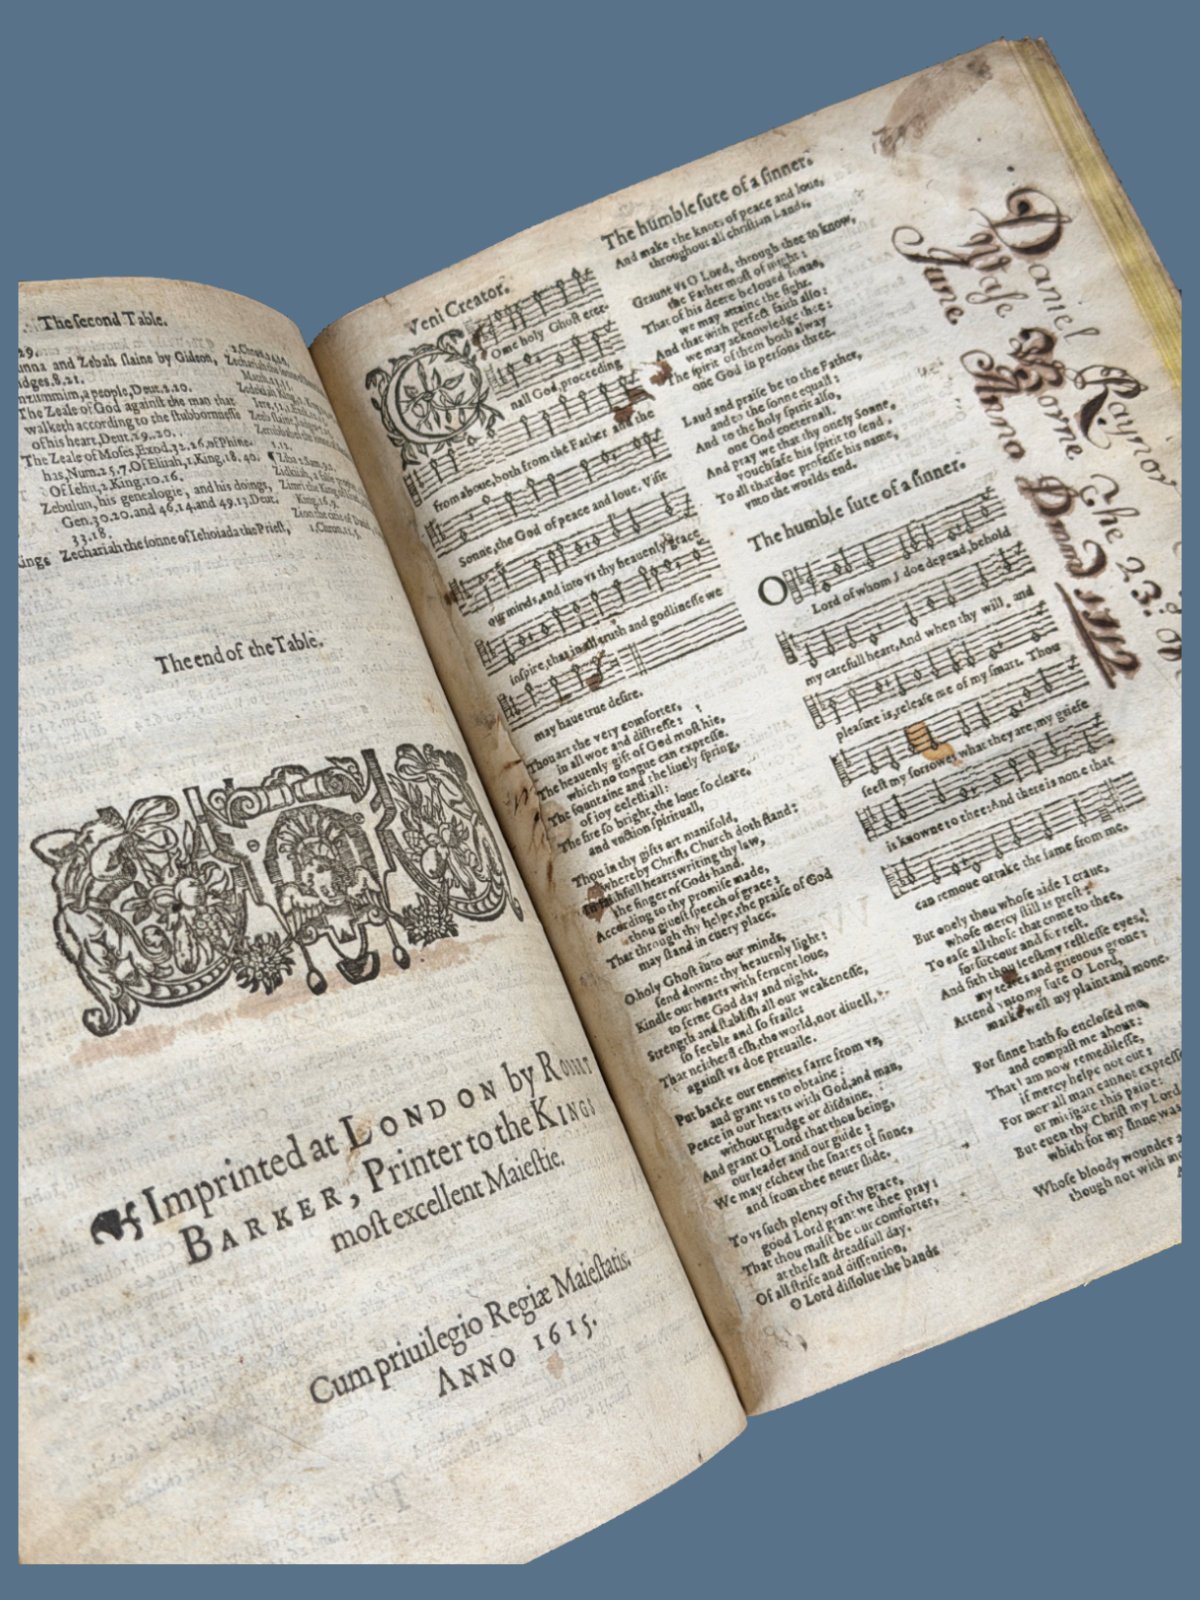 The second Table.
29.
unna and Zebah slaine by Gideon,
dges, 8.21.
mzummim, a people, Deut. 2.20.
The Zeale of God against the man that
walketh according to the stubbornnesse
of his heart, Deut. 29. 20.
The Zeale of Moses, Exod. 32. 26. of Phine-
has, Num. 25. 7. Of Eliiah, 1. King. 18. 40.
Of Iehu, 2. King. 10. 16.
Zebulun, his genealogie, and his doings,
Gen. 30. 20. and 46. 14. and 49. 13. Deut.
33. 18.
Zechariah the sonne of Iehoiada the Priest,
The end of the Table.
Imprinted at LONDON by ROBERT
BARKER, Printer to the KINGS
most excellent Maiestie.
Cum priuilegio Regiæ Maiestatis.
ANNO 1615.
Veni Creator.
COme holy Ghost eter-
nall God, proceeding
from aboue, both from the Father and the
Sonne, the God of peace and loue. Visit
our minds, and into vs thy heauenly grace
inspire, that in all truth and godlinesse we
may haue true desire.
Thou art the very comforter,
in all woe and distresse:
The heauenly gift of God most hie,
which no tongue can expresse.
The fountaine and the liuely spring,
of ioy celestiall:
The fire so bright, the loue so cleare,
and vnction spirituall,
Thou in thy gifts art manifold,
whereby Christs Church doth stand:
In faithfull hearts writing thy law,
the finger of Gods hand.
According to thy promise made,
thou giuest speech of grace:
That through thy helpe, the praise of God
may stand in euery place.
O holy Ghost into our minds,
send downe thy heauenly light:
Kindle our hearts with feruent loue,
to serue God day and night.
Strength and stablish all our weakenesse,
so feeble and so fraile:
That neither flesh, the world, nor diuell,
against vs doe preuaile.
Put backe our enemies farre from vs,
and grant vs to obtaine:
Peace in our hearts with God, and man,
without grudge or disdaine.
And grant O Lord that thou being,
our leader and our guide:
We may eschew the snares of sinne,
and from thee neuer slide.
To vs such plenty of thy grace,
good Lord grant we thee pray:
That thou maist be our comforter,
at the last dreadfull day.
Of all strife and dissention,
O Lord dissolue the bands
The humble sute of a sinner.
And make the knots of peace and loue,
throughout all christian Lands,
Graunt vs O Lord, through thee to know,
the Father most of might:
That of his deere beloued sonne,
we may attaine the sight.
And that with perfect faith also:
we may acknowledge thee:
The spirit of them both alway
one God in persons three.
Laud and praise be to the Father,
and to the sonne equall:
And to the holy spirit also,
one God coeternall.
And pray we that thy onely Sonne,
vouchsafe his spirit to send,
To all that doe professe his name,
vnto the worlds end.
The humble sute of a sinner.
O Lord of whom I doe depend, behold
my carefull heart, And when thy will, and
pleasure is, release me of my smart. Thou
seest my sorrowes what they are, my griefe
is knowne to thee: And there is none that
can remoue or take the same from me,
But onely thou whose aide I craue,
whose mercy still is prest:
To ease all those that come to thee,
for succour and for rest.
And sith thou seest my restlesse eyes,
my teares and grieuous grone:
Attend vnto my sute O Lord,
marke well my plaint and mone.
For sinne hath so enclosed me,
and compast me about:
That I am now remedilesse,
if mercy helpe not out:
For mortall man cannot expresse
or mitigate this paine:
But euen thy Christ my Lord
which for my sinne was
Whose bloody wounds a
though not with
Daniel Raynor
Was Borne The 23: of
June Anno Domini 1712